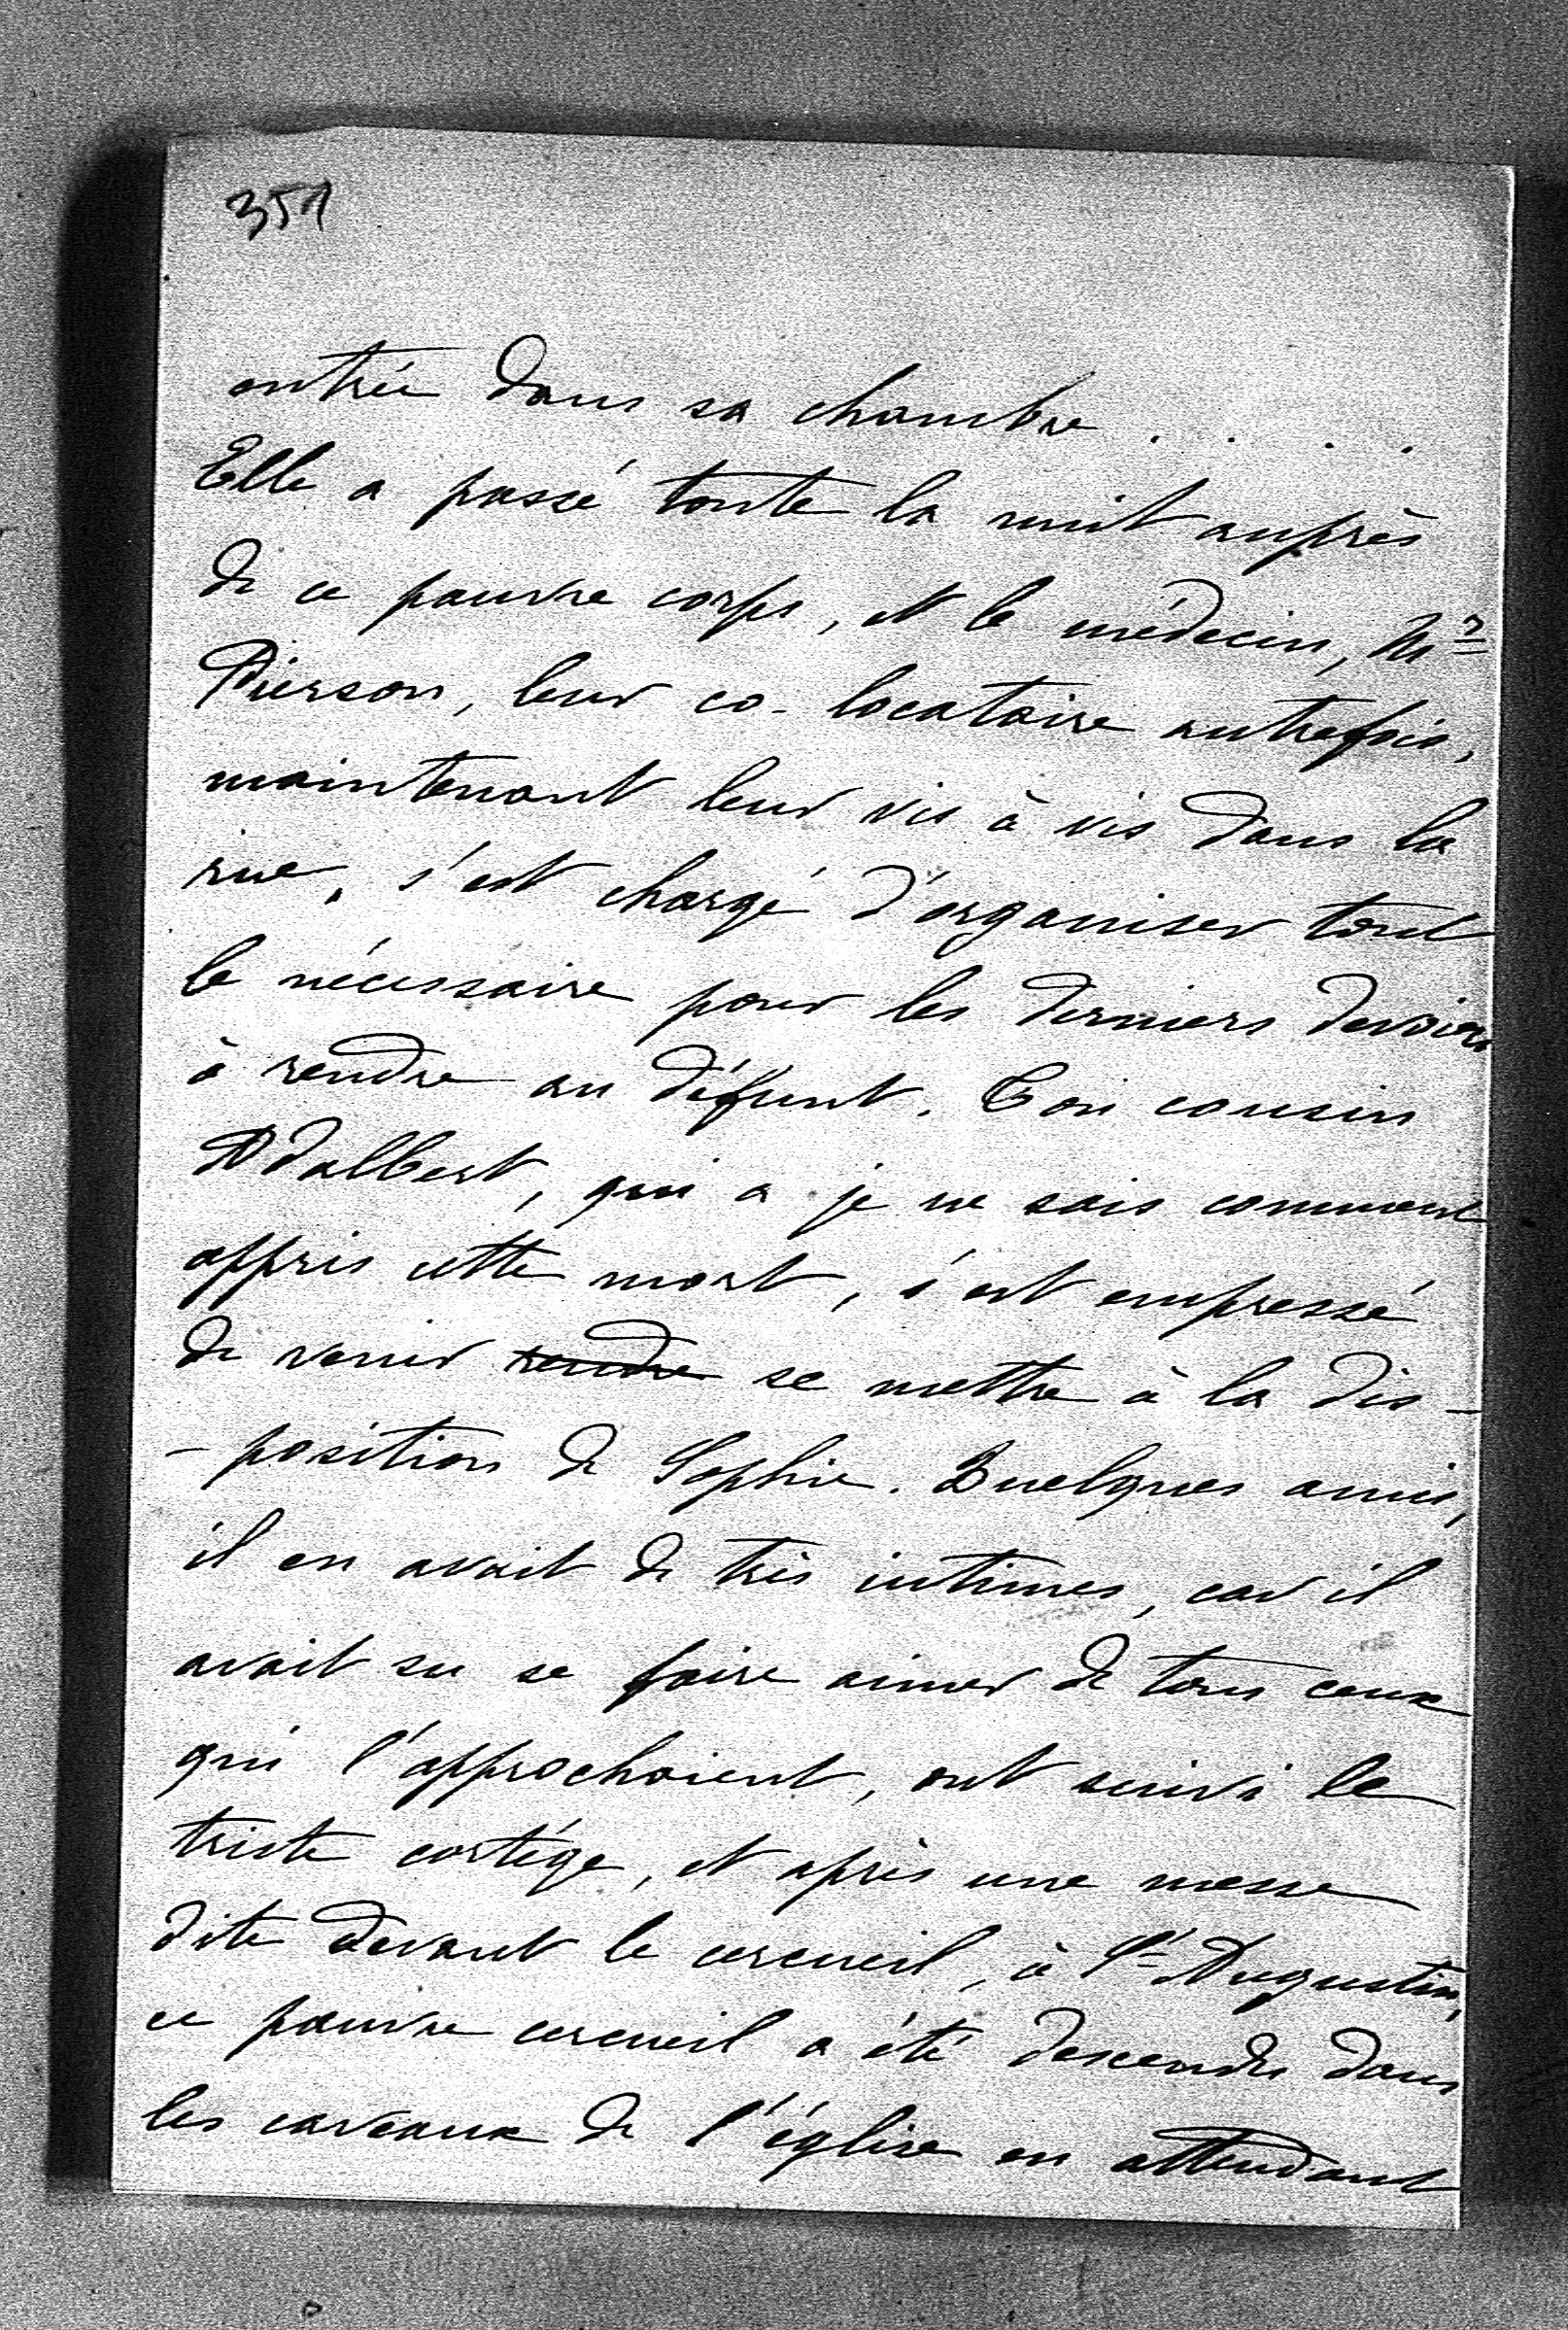 351
entrée dans sa chambre . . . .
Elle a passé toute la nuit auprès
de ce pauvre corps, et le médecin, Mr
Pierson, leur co-locataire autrefois,
maintenant leur vis à vis dans la
rue, s'est chargé d'organiser tout
le nécessaire pour les derniers devoirs
à rendre au défunt. Ton cousin
Adalbert, qui a je ne sais comment
appris cette mort, s'est empressé
de venir rendre se mettre à la dis-
-position de Sophie. Quelques amis,
il en avait de très intimes, car il
avait su se faire aimer de tous ceux
qui l'approchaient, ont suivi le
triste cortége, et après une messe
dite devant le cercueil, à St Augustin,
ce pauvre cercueil a été descendu dans
les caveaux de l'église en attendant